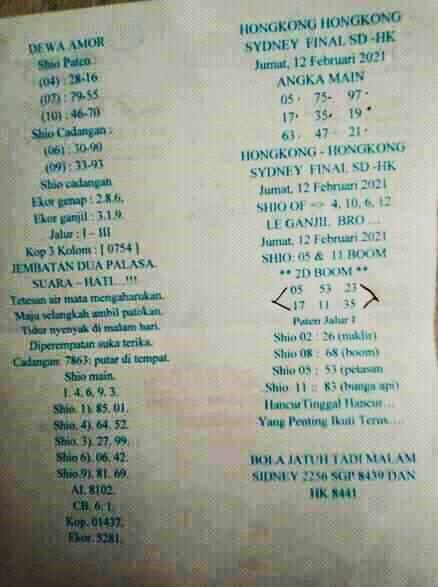 DEWA AMOR
Shio Paten :
(04) : 28-16
(07) : 79-55
(10) : 46-70
Shio Cadangan :
(06) : 30-90
(09) : 33-93
Shio cadangan
Ekor genap : 2.8.6,
Ekor ganjil : 3.1.9.
Jalur : I - III
Kop 3 Kolom : [ 0754 ]
JEMBATAN DUA PALASA.
SUARA - HATI...!!!
Tetesan air mata mengaharukan.
Maju selangkah ambil patokan.
Tidur nyenyak di malam hari.
Diperempatan suka terika.
Cadangan: 7863: putar di tempat.
Shio main.
1. 4. 6, 9, 3.
Shio. 1). 85. 01.
Shio. 4). 64. 52.
Shio. 3). 27. 99.
Shio 6). 06. 42.
Shio.9). 81. 69.
AI. 8102.
CB. 6: 1.
Kop. 01437.
Ekor. 5281.
HONGKONG HONGKONG
SYDNEY FINAL SD -HK
Jumat, 12 Februari 2021
ANGKA MAIN
05 75 97
17 35 19
63 47 21
HONGKONG - HONGKONG
SYDNEY FINAL SD -HK
Jumat, 12 Februari 2021
SHIO OF => 4, 10, 6, 12
LE GANJIL BRO ...
Jumat, 12 Februari 2021
SHIO: 05 & 11 BOOM
** 2D BOOM **
05 53 23
17 11 35
Paten Jalur 1
Shio 02 : 26 (nuklir)
Shio 08 : 68 (boom)
Shio 05 : 53 (petasan
Shio 11 : 83 (bunga api)
HancurTinggal Hancur...
Yang Penting Ikuti Terus....
BOLA JATUH TADI MALAM
SIDNEY 2256 SGP 8439 DAN
HK 8441